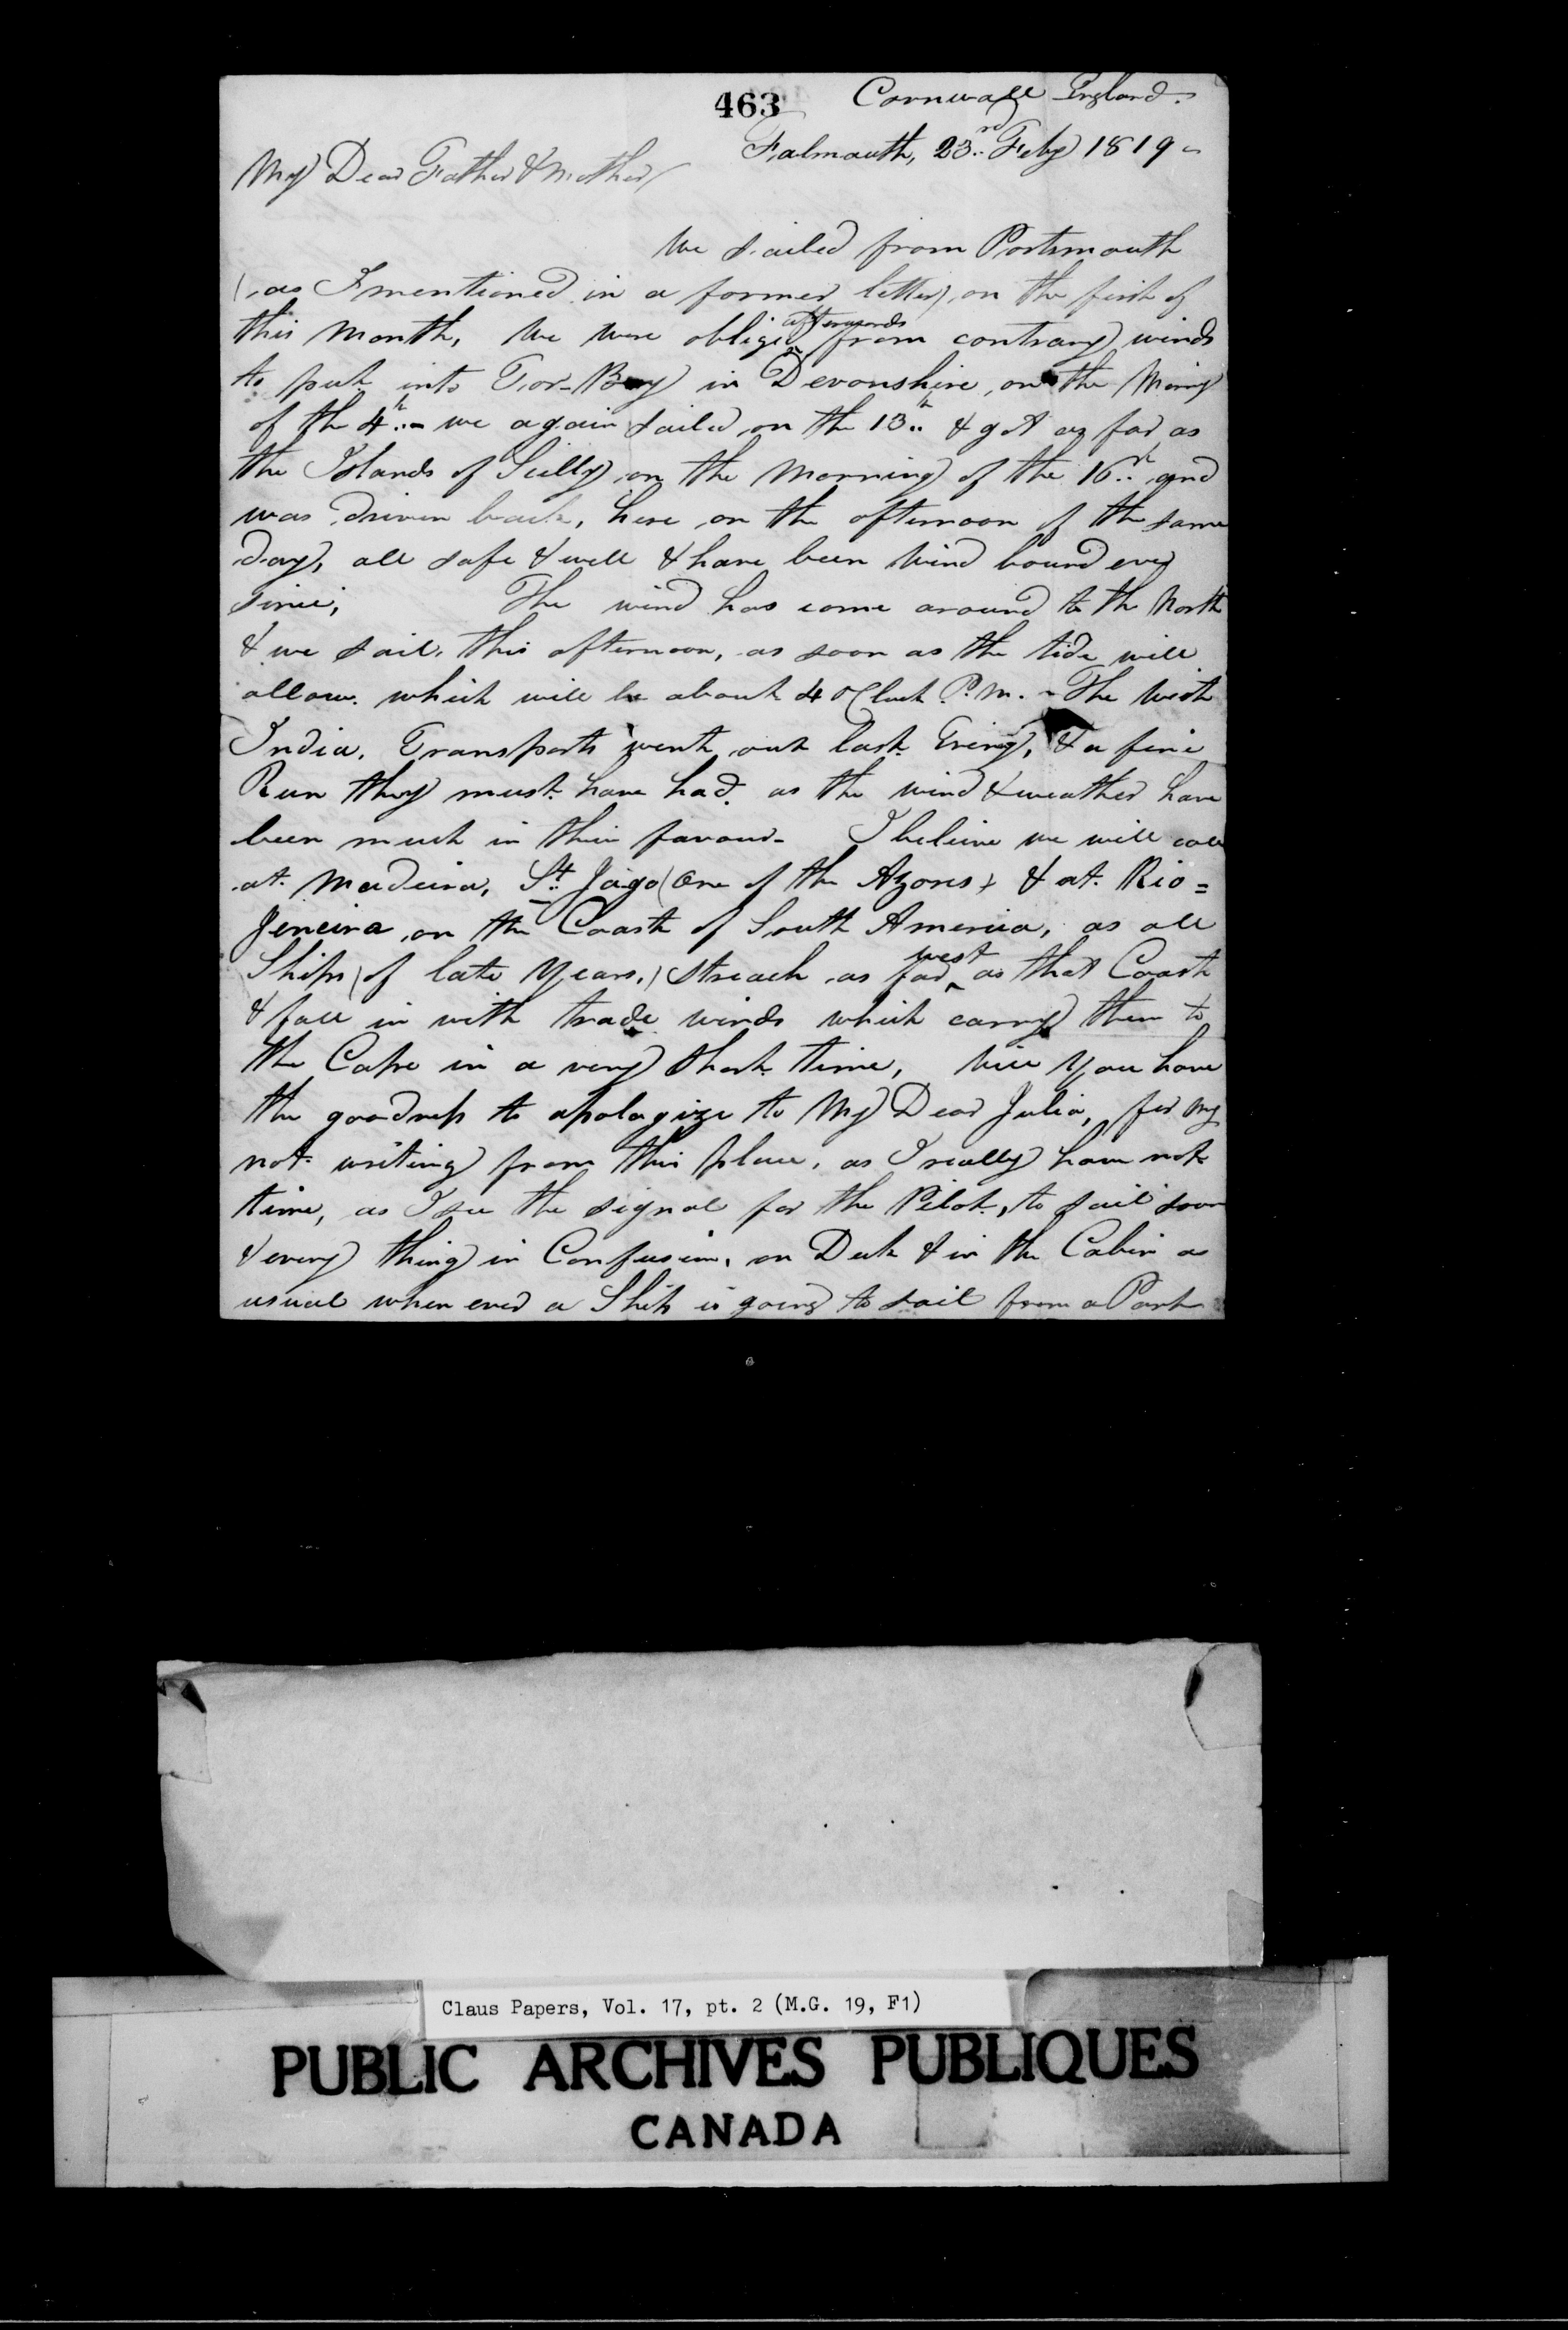 463 Cornwall England.
Falmouth, 23.rd Feby 1819
My Dear Father & Mother
We sailed from Portsmouth
(as I mentioned in a former letter) on the first of
this Month, We were oblige'd afterwards from contrary winds
to put into Tor-Bay in Devonshire, on the Morng
of the 4.th - we again sailed on the 13.th & got as far as
the Islands of Scilly on the Morning of the 16.th and
was driven back, here on the afternoon of the same
day, all safe & well & have been Wind bound ever
since, The wind has come around to the North
& we sail, this afternoon, as soon as the tide will
allow. which will be about 4 oClock P.M. - The West
India, Transports went out last Eveng, & a fine
Run they must have had. as the wind & weather have
been much in their favour - I believe we will call
at Madeira, St. Jago (One of the Azores) & at Rio =
Jeneira on the Coast of South America, as all
Ships (of late Years,) streach as far west as that Coast
& fall in with trade winds which carry them to
the Cape in a very short time, Will You have
the goodness to apologize to My Dear Julia, for my
not writing from this place, as I really have not
time, as I see the signal for the Pilot, to sail soon
& every thing in Confusion, on Deck & in the Cabin as
usual when ever a Ship is going to sail from a Port
Claus Papers, Vol. 17, pt. 2 (M.G. 19, F1)
PUBLIC ARCHIVES PUBLIQUES
CANADA